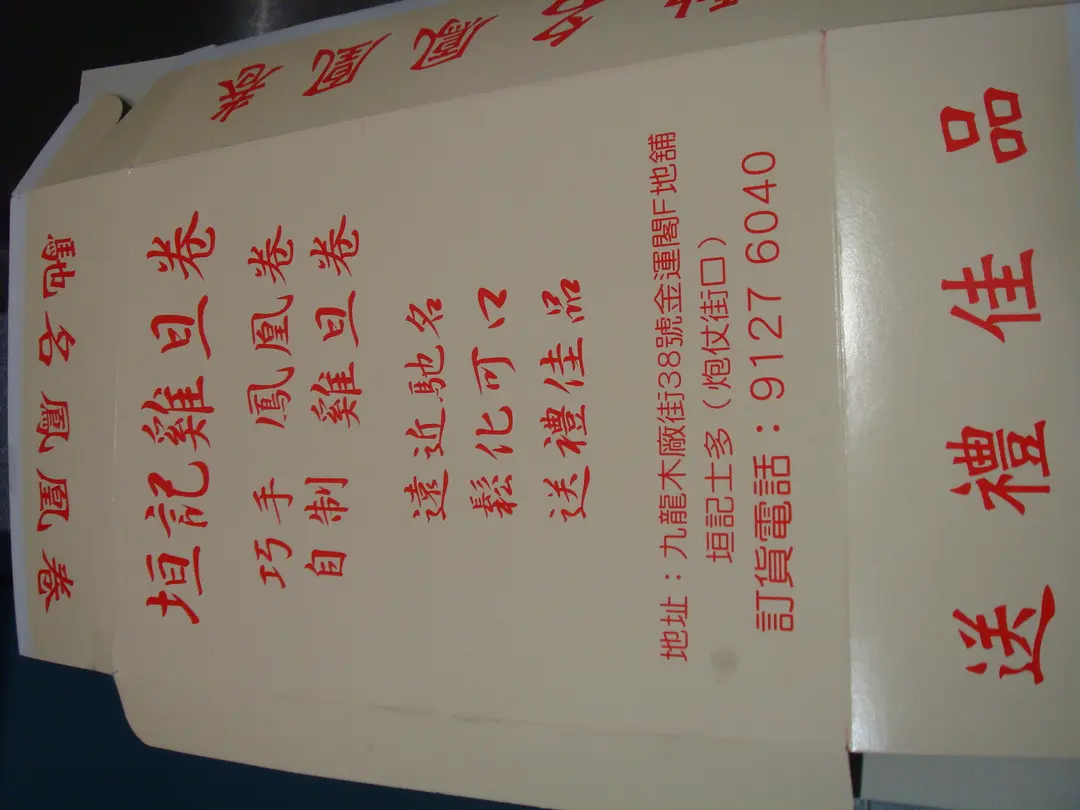 馳名鳳凰卷
垣記雞旦卷
巧手 鳳凰卷
自制 雞旦卷
遠近馳名
鬆化可口
送禮佳品
地址：九龍木廠街38號金運閣F地舖
垣記士多（炮仗街口）
訂貨電話：9127 6040
送禮佳品